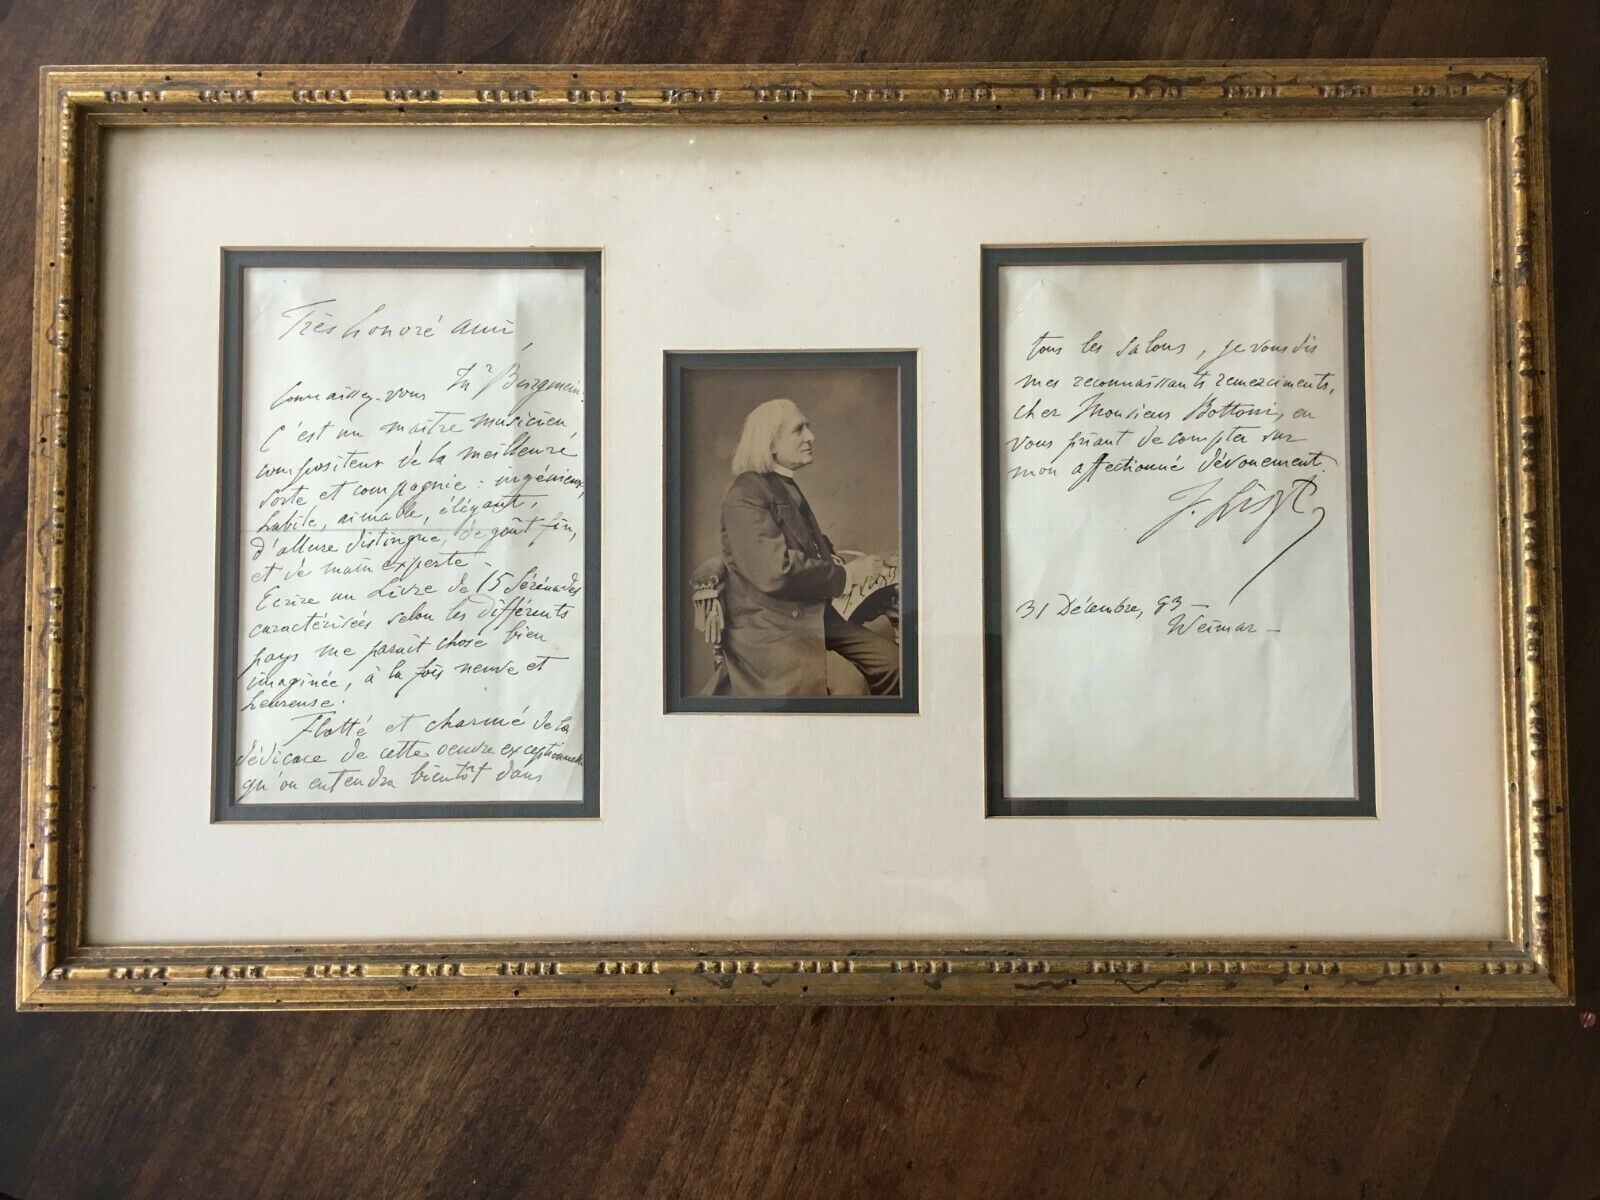 Très honoré ami,
Connaissez-vous Mr
C'est un maître musicien,
compositeur de la meilleure
sorte et compagnie : ingénieux,
habile, aimable, élégant,
d'allure distingué, de goût fin,
et de main experte –
Ecrire un Livre de 15 Sérénades
caractérisées selon les différents
pays me paraît chose bien
imaginée, à la fois neuve et
heureuse.
Flatté et charmé de la
dédicace de cette oeuvre exceptionnelle
qu'on entendra bientôt dans
F. Liszt
tous les salons, je vous dis
mes reconnaissants remerciments,
cher Monsieur Bottoni, en
vous priant de compter sur
mon affectionné dévouement.
F. Liszt
31 Décembre, 83 –
Weimar –